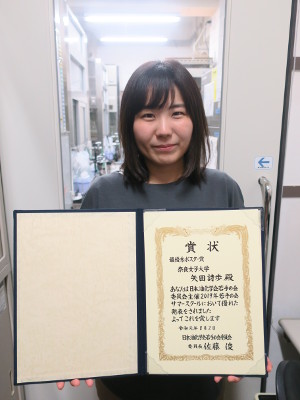 賞状
最優秀ポスター賞
奈良女子大学
矢田詩歩 殿
あなたは日本油化学会若手の会
委員会主催2019年若手の会
サマースクールにおいて優れた
発表をされました
よってこれを賞します
令和元年
日本油化学会若手の会委員会
委員長 佐藤 俊